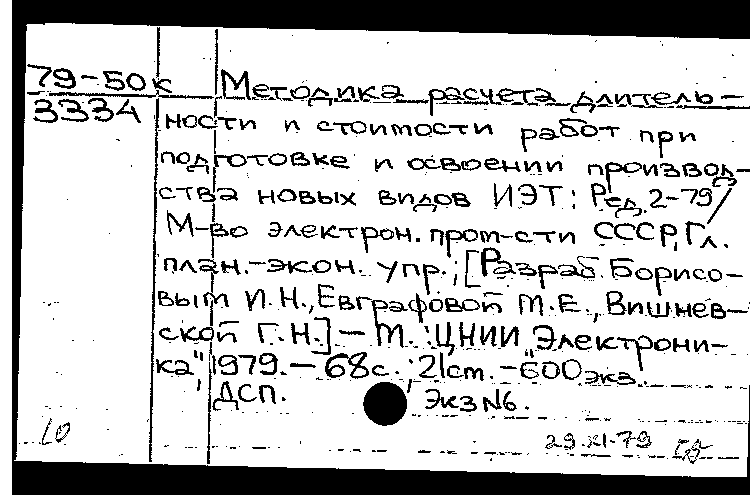 79-50к Методика расчета длитель-
3334 ности и стоимости работ при
подготовке и освоении производ-
ства новых видов ИЭТ: Ред. 2-79/
М-во электрон. пром-сти СССР, Гл.
план.-экон. упр.; [Разраб. Борисо-
вым И.Н., Евграфовой М.Е., Вишнев-
ской Г.Н.] - М.: ЦНИИ "Электрони-
ка", 1979. - 68с.; 21см. - 600 экз.
ДСП. Экз N6.
LO 29.XI.79